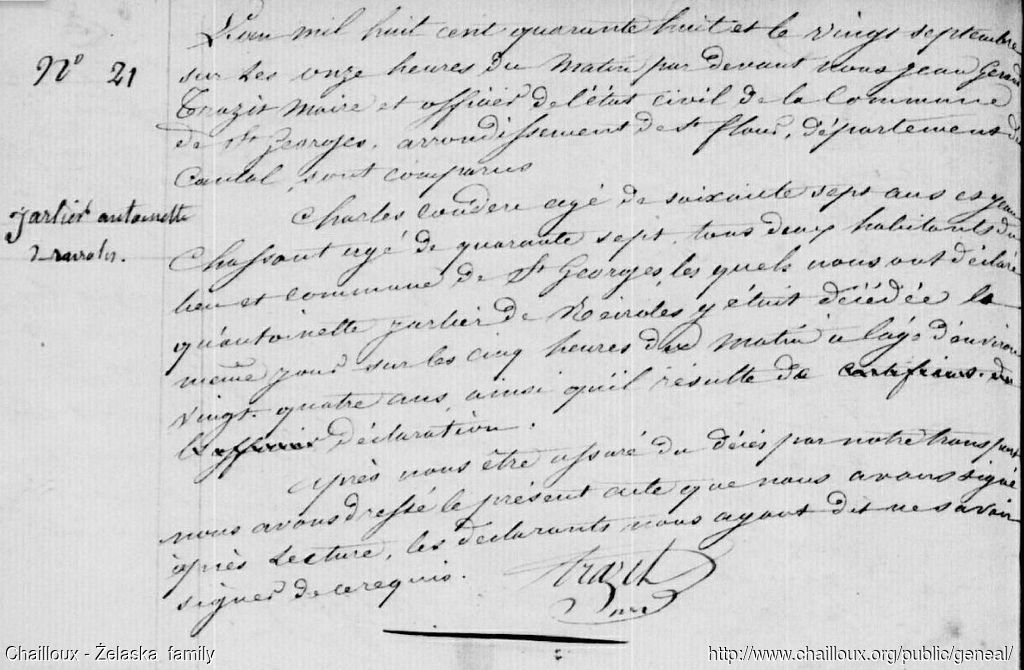 L'an mil huit cent quarante huit et le vingt septembre
N° 21
sur les onze heures du matin par devant nous jean Gerand
Trazit maire et officier de l'état civil de la Commune
de St Georges, arrondissement de St flour, département du
Cantal, sont comparus
jarlier antoinette
Charles couderc agé de soixante sept ans et jean
Chassant agé de quarante sept, tous deux habitants du
lieu et commune de St Georges, les quels nous ont déclaré
qu'antoinette jarlier de Reiroles y était décédée le
même jour sur les cinq heures du matin a l'age d'environ
vingt quatre ans, ainsi qu'il résulte de
déclaration.
après nous être assuré du décés par notre transport
nous avons dressé le présent acte que nous avons signé
après Lecture, les declarants nous ayant dit ne savoir
signer de ce requis.
Trazit
Chailloux - Želaska family
http://www.chailloux.org/public/geneal/